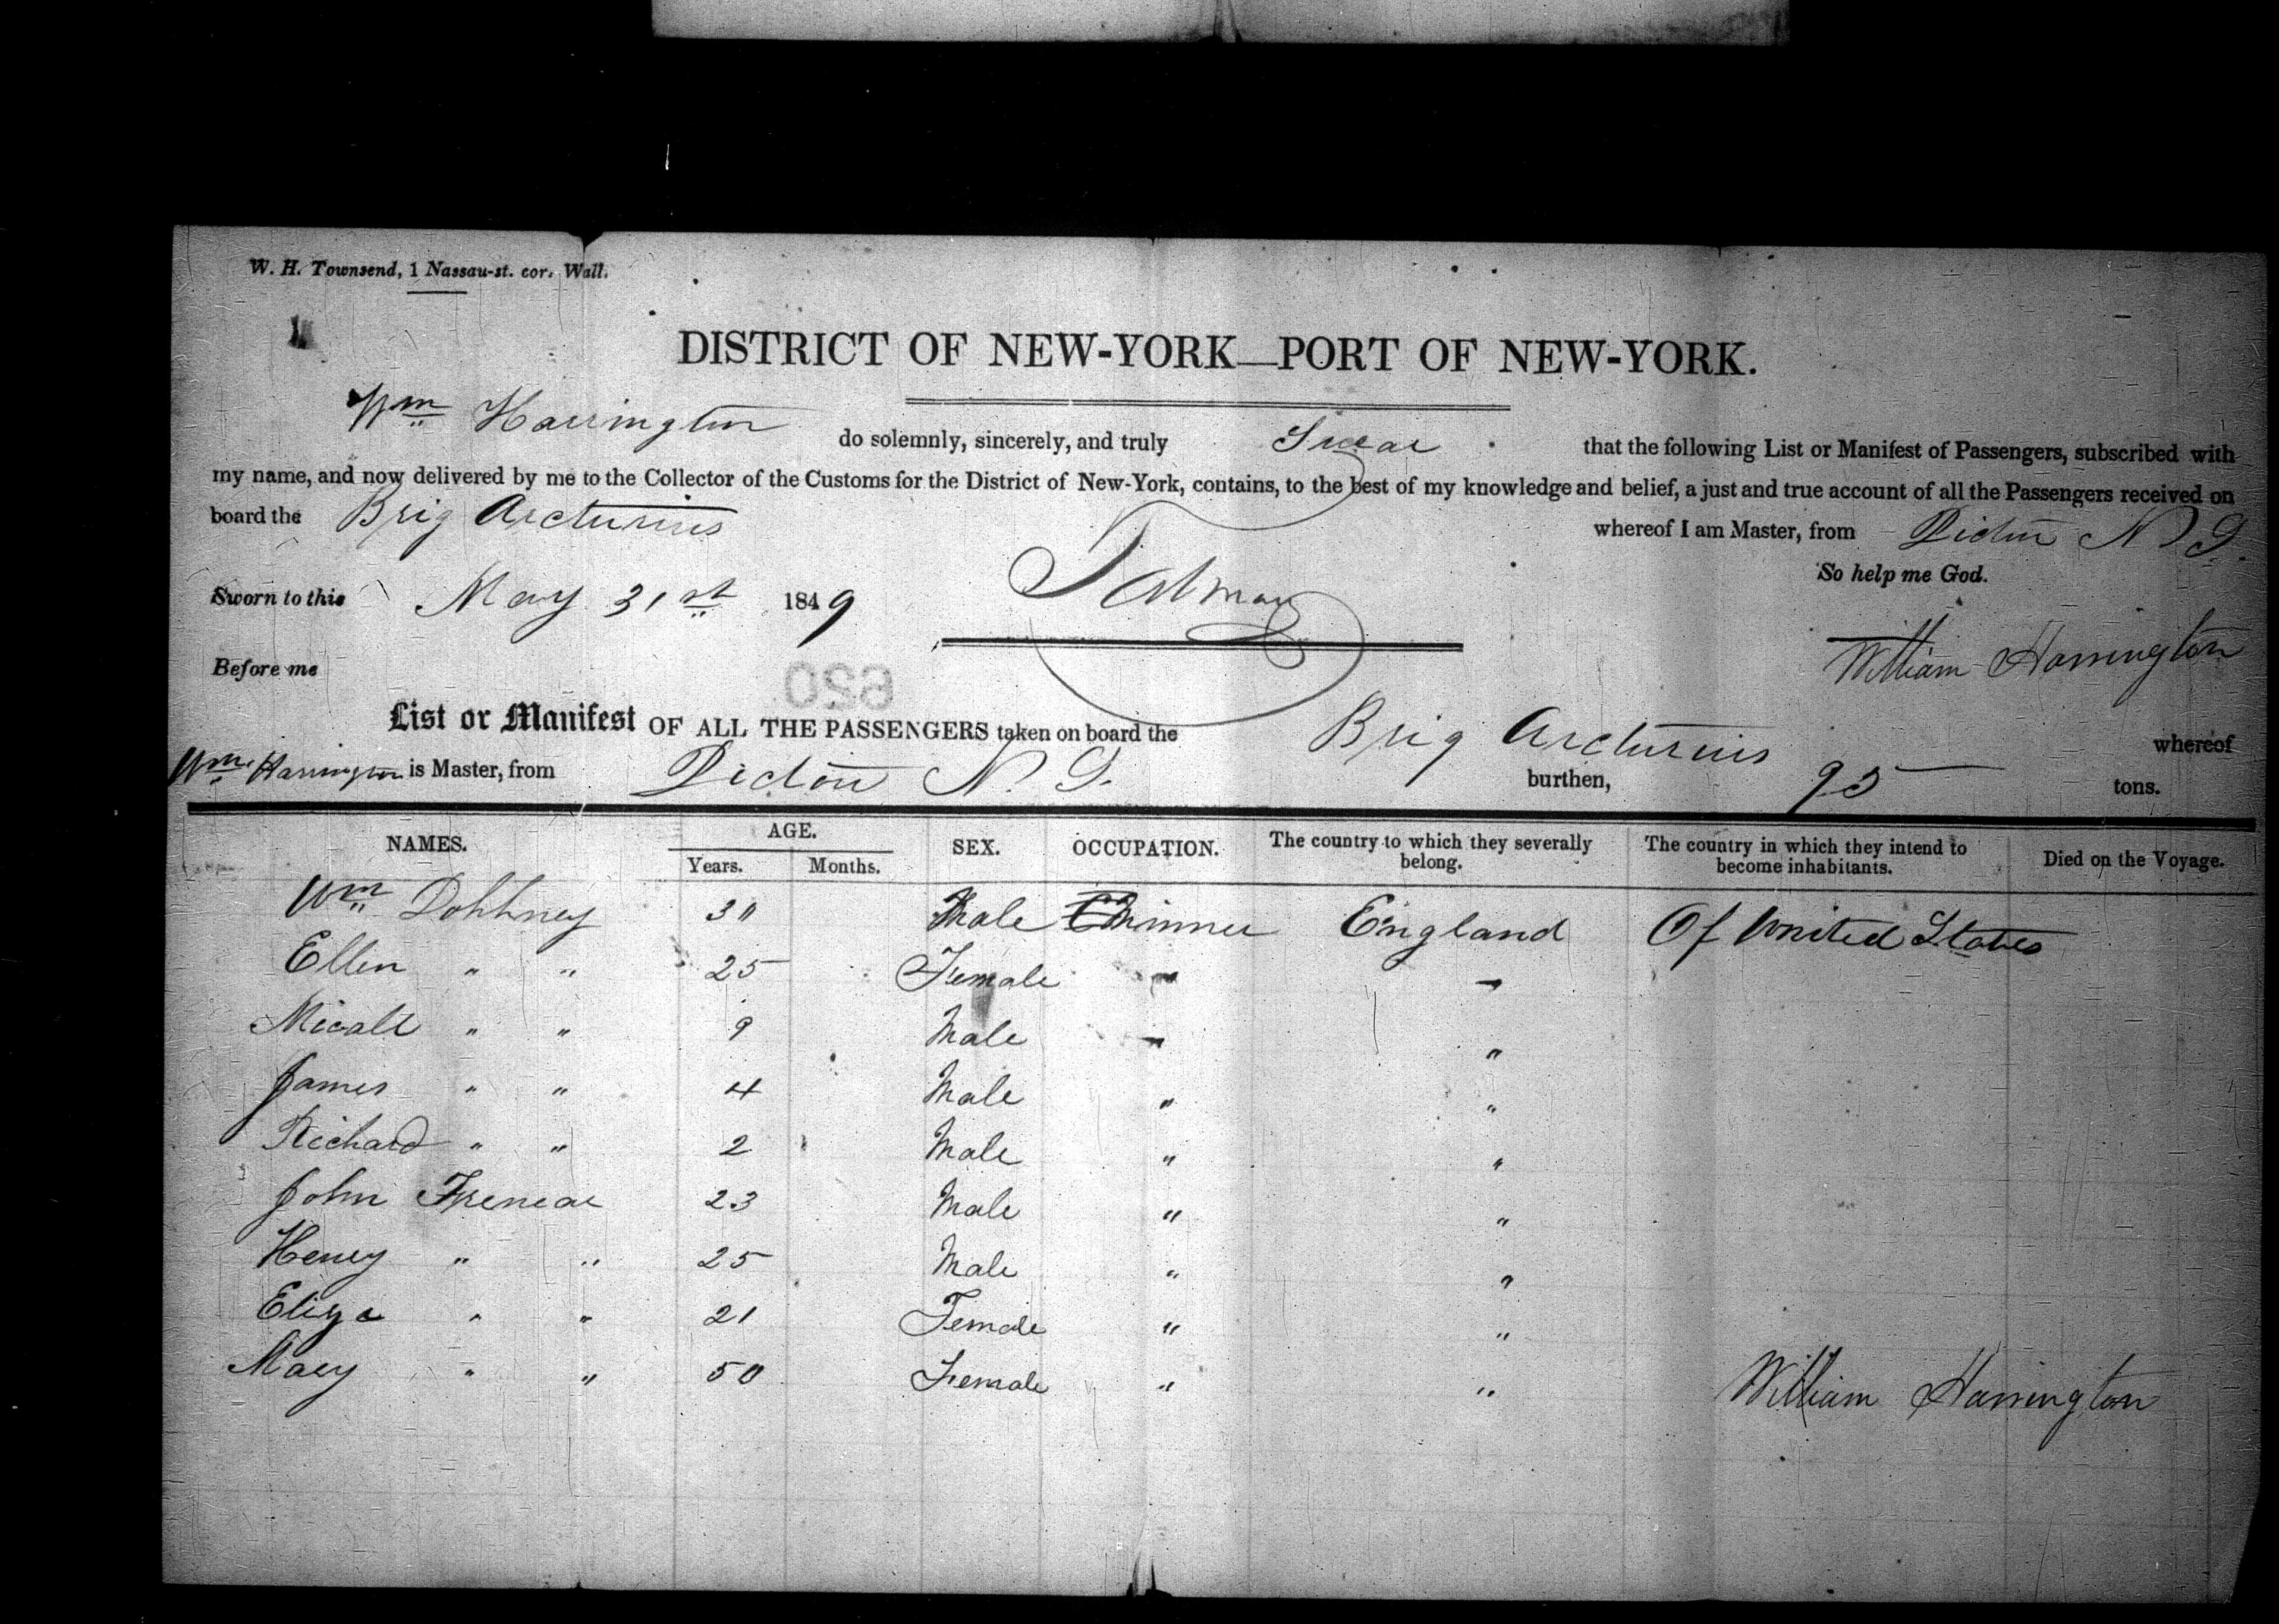 W. H. Townsend, 1 Nassau-st. cor. Wall.
DISTRICT OF NEW-YORK—PORT OF NEW-YORK.
Wm Harrington do solemnly, sincerely, and truly Swear that the following List or Manifest of Passengers, subscribed with
my name, and now delivered by me to the Collector of the Customs for the District of New-York, contains, to the best of my knowledge and belief, a just and true account of all the Passengers received on
board the Brig Arcturius whereof I am Master, from Pictou N S.
So help me God.
Sworn to this May 31st 1849
William Harrington
Before me
List or Manifest OF ALL THE PASSENGERS taken on board the Brig Arcturius whereof
Wm. Harrington is Master, from Pictou N. S. burthen, 95 tons.
NAMES. AGE. SEX. OCCUPATION. The country to which they severally belong. The country in which they intend to become inhabitants. Died on the Voyage.
Years. Months.
Wm Dohhney 30 Male Minner England Of United States
Ellen " " 25 Female " "
Micall " " 9 Male " "
James " " 4 Male " "
Richard " " 2 Male " "
John Frenear 23 Male " "
Henry " " 25 Male " "
Eliza " " 21 Female " "
Mary " " 50 Female " "
William Harrington